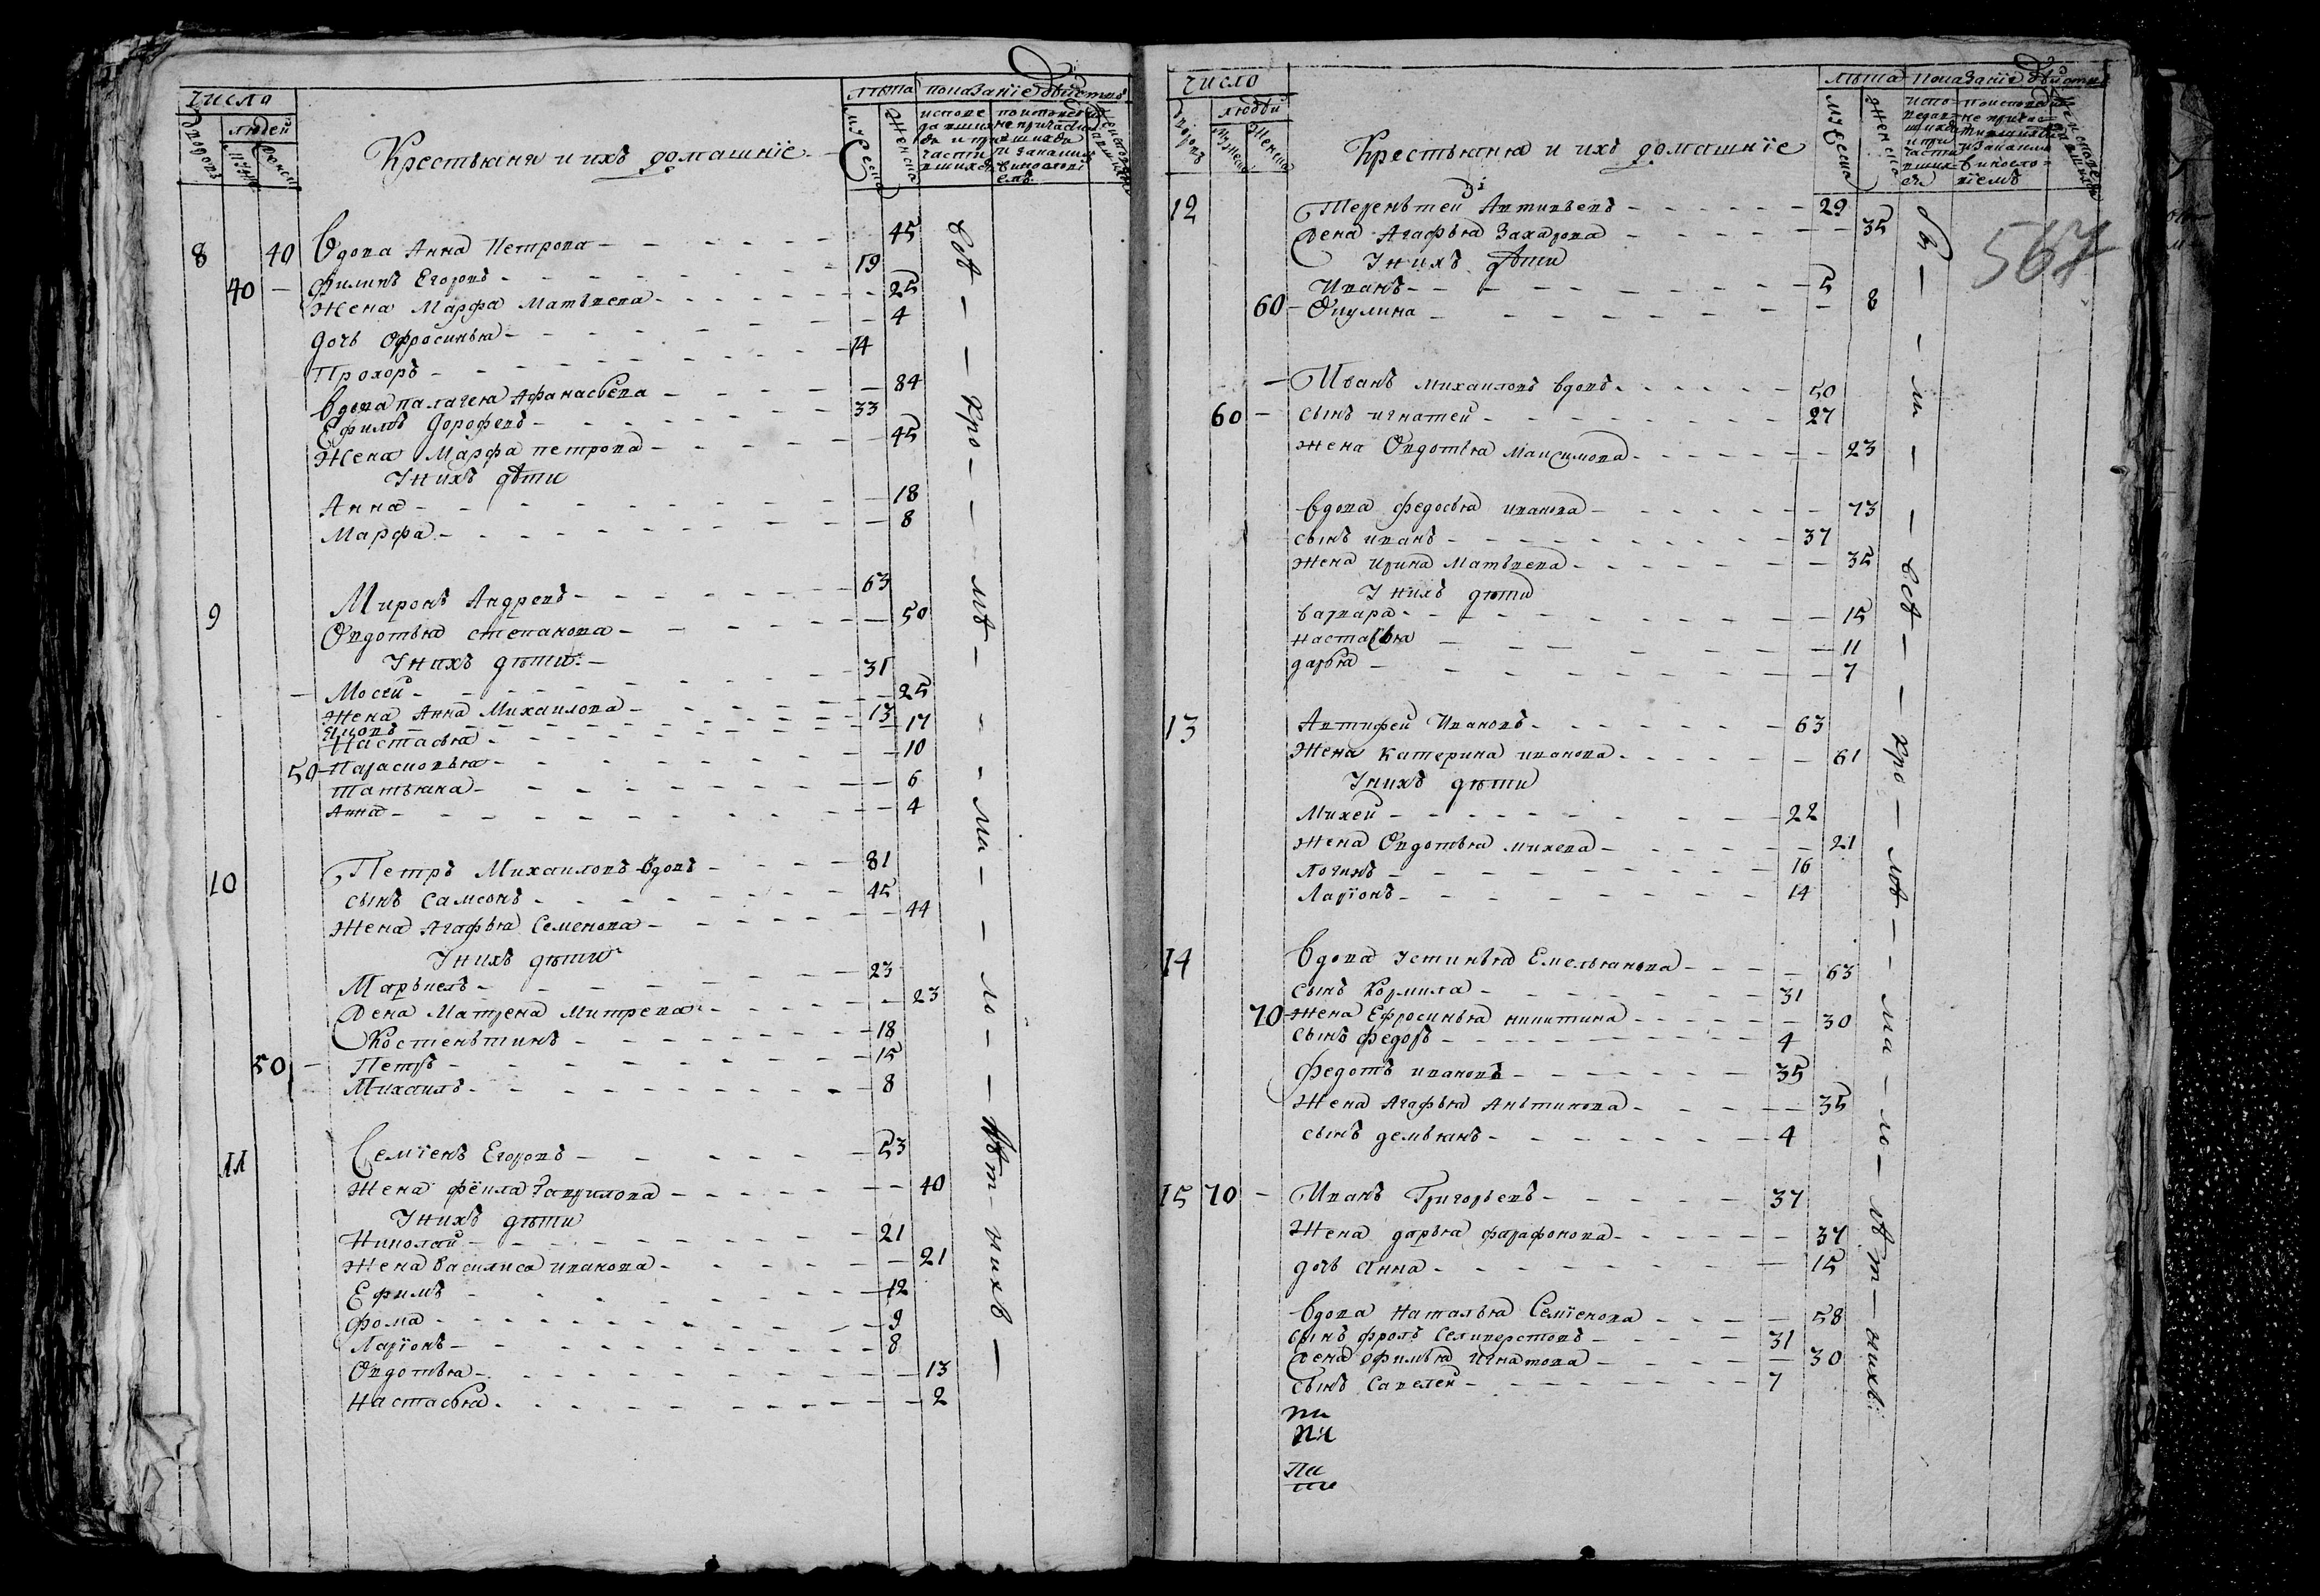 Число
Дворовъ
людей
Мужеска
Женска
Крестьяня и ихъ домашнїе
лѣта
показанїе действъ
Мужеска
Женска
испове
давших
ся и при
части
вшихся
8 40 Вдова Анна Петрова 45
40 Филипъ Егоровъ 19
Жена Марфа Матьвева 25
Дочь Офросинья 4
Прохоръ 14
Вдова палагея Афанасьева 84
Ефимъ Дорофевъ 33
Жена Марфа петрова 45
У нихъ дѣти
Анна 18
Марфа 8
9 Миронъ Андревъ 63
Овдотья степанова 50
У нихъ дѣти
Мосей 31
Жена Анна Михаилова 25
Яковъ 13
Настасья 17
50 Парасковья 10
Татьяна 6
Анна 4
10 Петръ Михаиловъ вдовъ 81
сынъ Самсонъ 45
Жена Агафья Семенова 44
У нихъ дѣти
Маркелъ 23
Жена Матрена Митрева 23
Костеньтинъ 18
50 Петръ 15
Михаилъ 8
11 Семїенъ Егоровъ 53
Жена фёкла Гаврилова 40
У нихъ дѣти
Николай 21
Жена Василиса иванова 21
Ефимъ 12
Фома 9
Ларїонъ 8
Овдотья 13
Настасья 2
всѣ кро мѣ ма ло лѣт нихъ
Число
Дворовъ
людей
Мужеска
Женска
Крестьяня и ихъ домашнїе
лѣта показанїе действъ
Мужеска
Женска
567
12 Тереньтей Антипьевъ 29
Жена Агафья Захарова 35
У нихъ дѣти
Иванъ 5
60 Окулина 8
Иванъ михаиловъ вдовъ 50
60 сынъ игнатей 27
Жена Овдотья Максимова 23
Вдова федосья иванова 73
сынъ иванъ 37
Жена Ирина Матьвева 35
У нихъ дѣти
варвара 15
настасья 11
дарья 7
13 Антифей Ивановъ 63
Жена Катерина иванова 61
У нихъ дѣти
Михей 22
Жена Овдотья михева 21
Логинъ 16
Ларїонъ 14
14 Вдова Устинья Емельянова 63
сынъ Кормила 31
70 Жена Ефросинья никитина 30
сынъ федоръ 4
Федотъ ивановъ 35
Жена Агафья Аньтипова 35
сынъ демьянъ 4
15 70 Иванъ Григорьевъ 37
Жена дарья фарафонова 37
дочь Анна 15
Вдова Наталья Семїенова 58
сынъ фролъ Селиверстовъ 31
Жена офимья Игнатова 30
сынъ Савелей 7
всѣ кро мѣ ма ло лѣт нихъ